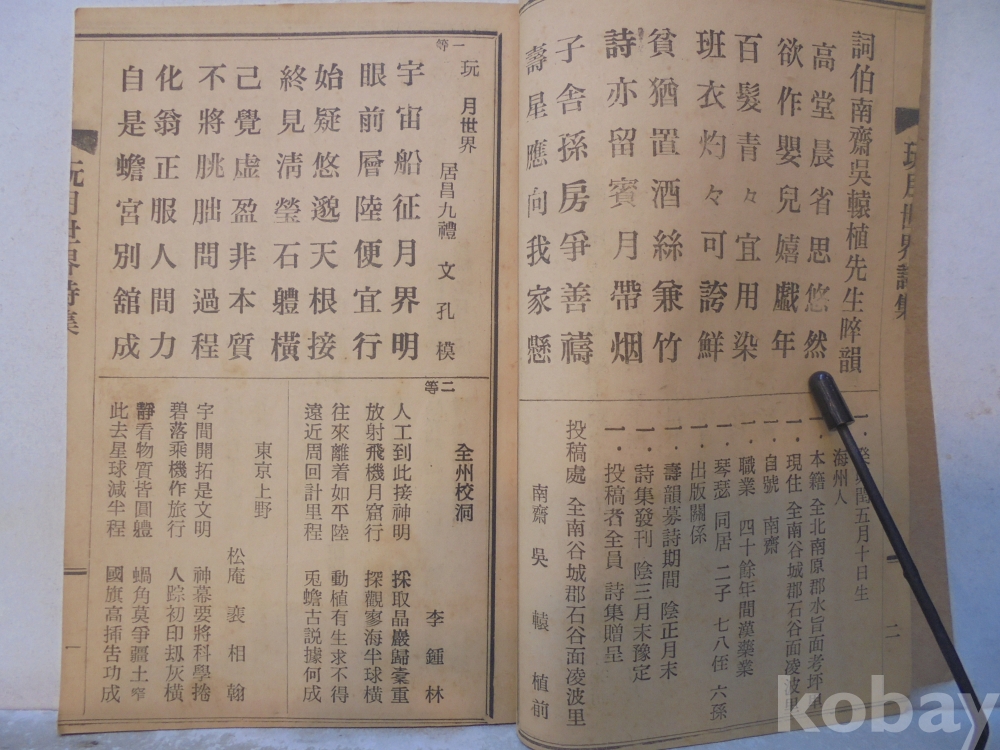 詞伯南齋吳轅植先生晬韻
高堂晨省思悠然
欲作嬰兒嬉戱年
百髮青々宜用染
班衣灼々可誇鮮
貧猶置酒絲兼竹
詩亦留賓月帶烟
子舍孫房爭善禱
壽星應向我家懸
閏五月十日生
海州人
一・本籍 全北南原郡水旨面考坪里
一・現住 全南谷城郡石谷面凌波里
一・自號 南齋
一・職業 四十餘年間漢藥業
一・琴瑟 同居 二子 七八侄 六孫
出版關係
一・壽韻募詩期間 陰正月末
一・詩集發刊 陰三月末豫定
一・投稿者全員 詩集贈呈
投稿處 全南谷城郡石谷面凌波里
南齋 吳轅植前
玩月世界詩集
二
一等
玩月世界
居昌九禮 文孔模
宇宙船征月界明
眼前層陸便宜行
始疑悠邈天根接
終見淸瑩石軆橫
己覺虛盈非本質
不將朓朏問過程
化翁正服人間力
自是蟾宮別舘成
二等
全州校洞
李鍾林
人工到此接神明
採取晶巖歸槖重
放射飛機月窟行
探觀寥海半球橫
往來離着如平陸
動植有生求不得
遠近周回計里程
兎蟾古説據何成
東京上野
松庵 裵相翰
宇間開拓是文明
神幕要將科學捲
碧落乘機作旅行
人踪初印刼灰橫
靜看物質皆圓軆
蝸角莫爭疆土窄
此去星球減半程
國旗高揷告功成
玩月世界詩集
一
kobay